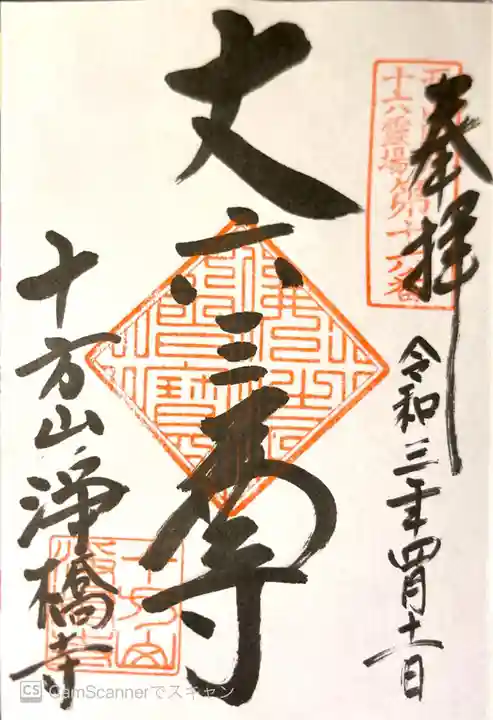 奉拝
令和三年四月十一日
十六霊場第
丈六三尊
十方山浄橋寺
十方山
CS CamScannerでスキャン